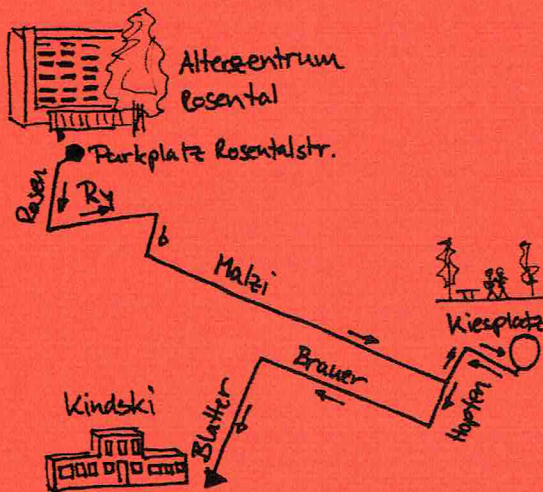 Alterszentrum
Rosental
Parkplatz Rosentalstr.
Rosen
Malzi
Kiesplatz
Brauer
Hopfen
Blatter
Kindski